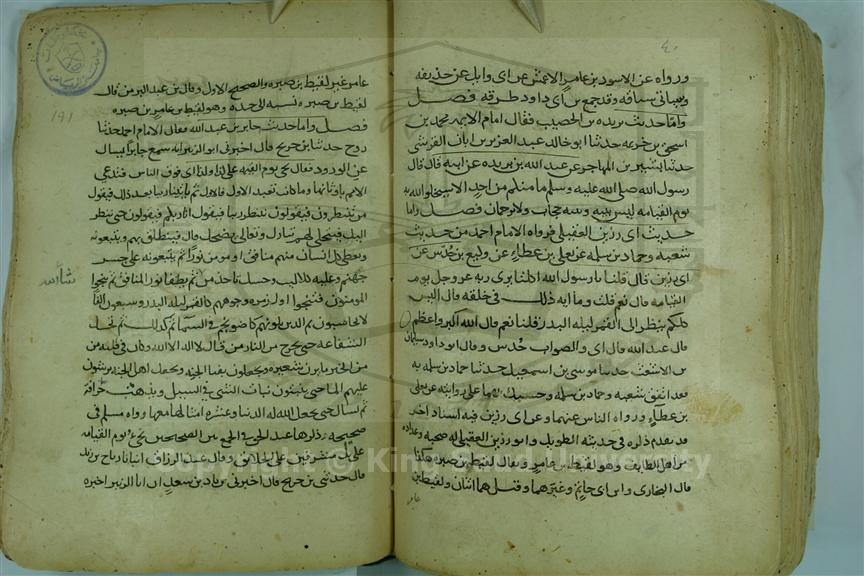 ورواه عن الاسود بن عامر الاعمش عن ابي وايل عن حذيفه
سياقه وقد جمع بن ابي داود طرقه فصل
واما حديث بريده بن الحصيب فقال امام الايمه محمد بن
اسحق بن خزيمه حدثنا ابو خالد عبد العزيز بن ابان القرشي
حدثنا بشير بن المهاجر عن عبد الله بن بريده عن ابيه قال قال
رسول الله صلى الله عليه وسلم ما منكم من احد الا سيخلوا الله به
يوم القيامه ليس بينه وبينه حجاب ولا ترجمان فصل واما
حديث ابي رزين العقيلي فرواه الامام احمد من حديث
شعبه وحماد بن سلمه عن يعلى بن عطاء عن وكيع بن حدس عن
ابي رزين قال قلنا يا رسول الله اكلنا يرى ربه عز وجل يوم
القيامه قال نعم قلت وما ايه ذلك في خلقه قال اليس
كلكم ينظر الى القمر ليله البدر قلنا نعم قال الله اكبر واعظم
قال عبد الله قال ابي والصواب حدس وقال ابو داود سليمان
بن الاشعث حدثنا موسى بن اسمعيل حدثنا حماد بن سلمه به
فقد اتفق شعبه وحماد بن سلمه وحسبك بهما على روايته عن يعلى
بن عطاء ورواه الناس عنهما وعن ابي رزين فيه اسناد اخر
قد تقدم ذكره في حديثه الطويل وابو رزين العقيلي له صحبه وعداده
من اهل الطايف وهو لقيط بن عامر ويقال لقيط بن صبره هكذا
قال البخاري وابن ابي حاتم وغيرهما وقيل هما اثنان ولقيط بن
عامر
عامر غير لقيط بن صبره والصحيح الاول وقال بن عبد البر من قال
لقيط بن صبره نسبه الى جده وهو لقيط بن عامر بن صبره
فصل واما حديث جابر بن عبد الله فقال الامام احمد حدثنا
روح حدثنا بن جريج قال اخبرني ابو الزبير انه سمع جابرا يسال
عن الورود فقال نحن يوم القيمه على كذا وكذا اي فوق الناس فتدعى
الامم باوثانها وما كانت تعبد الاول فالاول ثم ياتينا ربنا بعد ذلك فيقول
من تنتظرون فيقولون ننتظر ربنا فيقول انا ربكم فيقولون حتى ننظر
اليك فيتجلى لهم تبارك وتعالى يضحك قال فينطلق بهم ويتبعونه
ويعطى كل انسان منهم منافق او مومن نورا ثم يتبعونه على جسر
جهنم وعليه كلاليب وحسك تاخذ من شا الله ثم يطفا نور المنافق ثم ينجوا
المومنون فتنجوا اول زمره وجوههم كالقمر ليله البدر وسبعون الفا
لا يحاسبون ثم الذين يلونهم كاضو نجم في السما ثم كذلك ثم تحل
الشفاعه حتى يخرج من النار من قال لا اله الا الله وكان في قلبه من
الخير ما يزن شعيره ويجعلون بفنا الجنه ويجعل اهل الجنه يرشون
عليهم الما حتى ينبتون نبات الشي في السيل ويذهب حراقه
ثم يسال حتى يجعل الله له الدنيا وعشره امثالها معها رواه مسلم في
صحيحه
قال حدثني بن جريج قال اخبرني زياد بن سعد ان ابا الزبير اخبره
Copyright © King Saud University